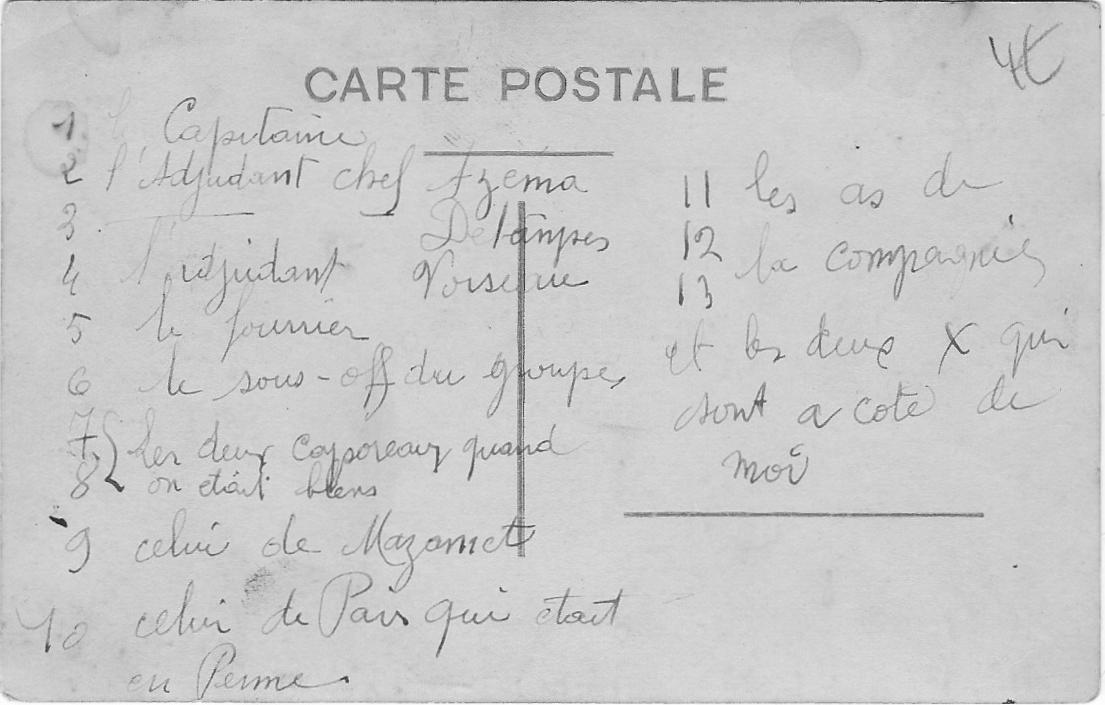 4€
CARTE POSTALE
1. le Capitaine
2 l'Adjudant chef Azéma
3 Delampes
4 l'adjudant Voiseau
5 le fourrier
6 le sous-off du groupe,
7 les deux caporeaux quand
8 on etait bleus
9 celui de Mazamet
10 celui de Paris qui etait
en Perme.
11 les as de
12 la compagnie,
13
et les deux X qui
sont a coté de
moi